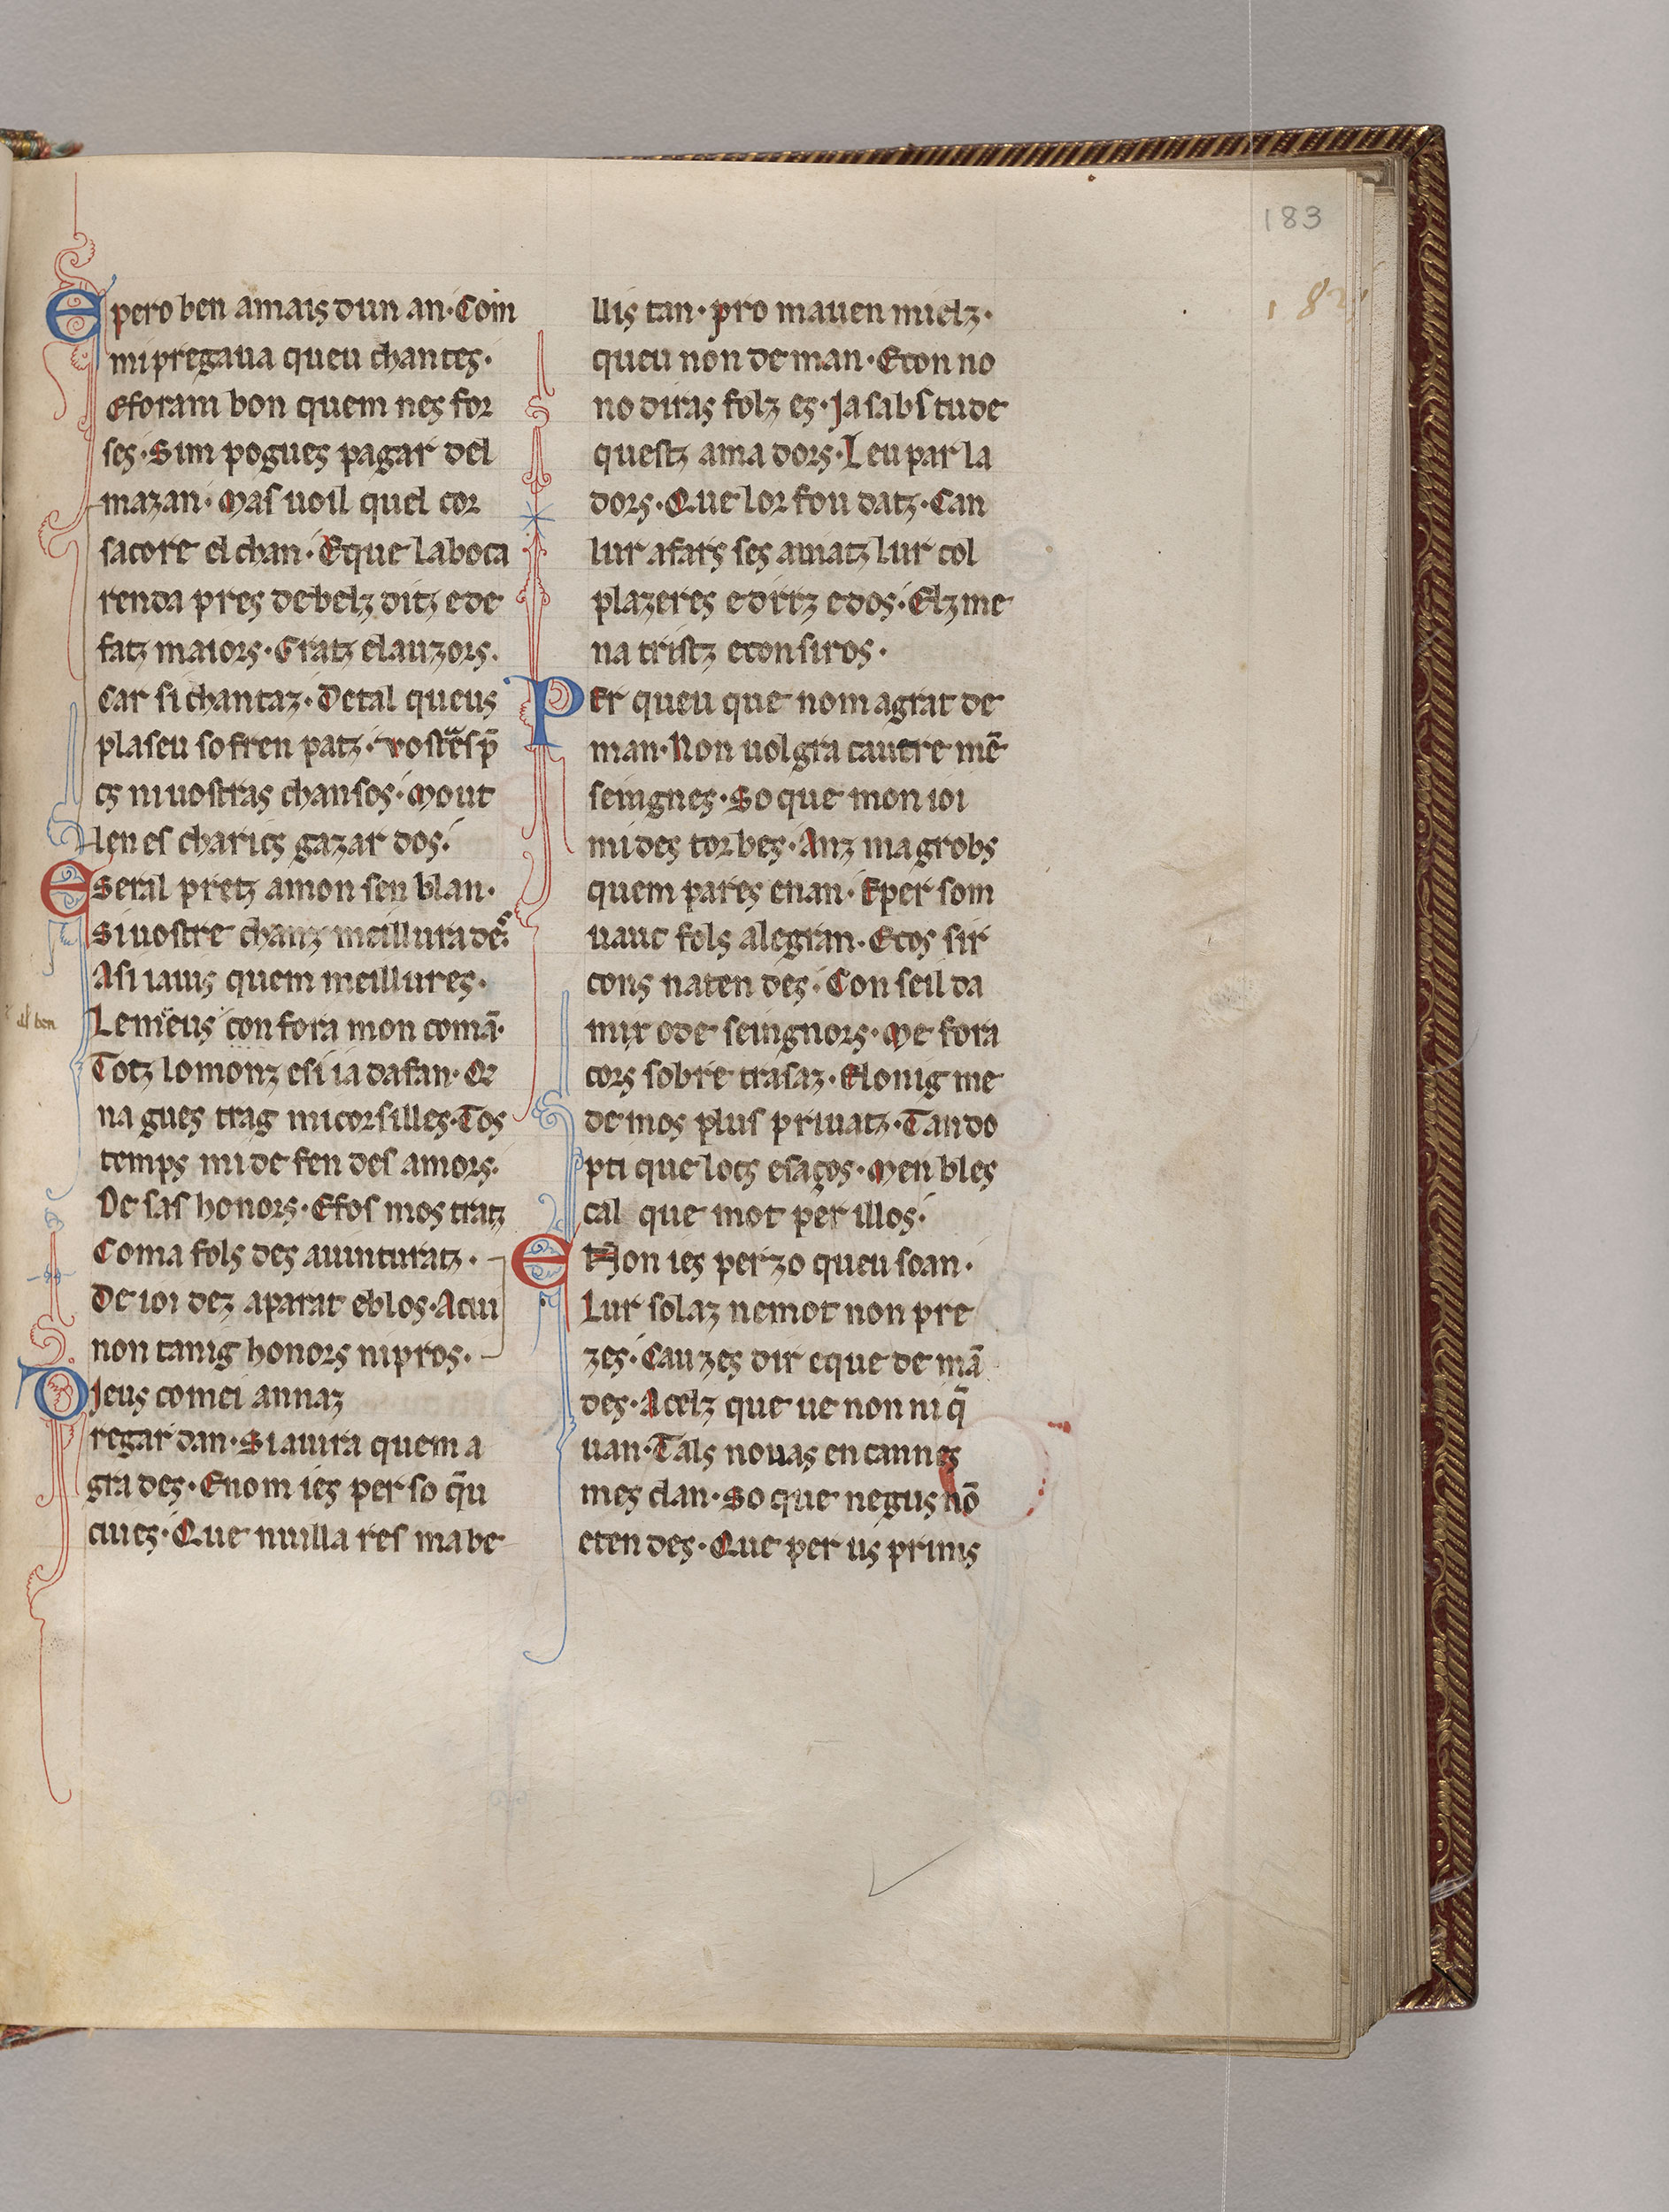 183
Epero ben amais dun an· Com
mi pregaua queu chantes·
Eforam bon quem nes for
ses· Sim pogues pagar del
mazan· Mas uoil quel cor
sacore el chan· Eque la boca
renda pres debelz ditz ede
fatz maiors· Gratz elauzors·
Car si chantaz· Detal queus
plaseu sofren patz·
cs ni uostras chansos· Mout
len es charics gazardos·
Eseral pretz amon senblan·
Si uostre chanz meillurades·
Asi iauis quem meillures·
Lemeus con fora mon comā·
Totz lo monz esi ia dafan· Or
nagues trag mi cor silles· Tos
temps mi defendes amors·
De sas honors· Efos mostratz
Coma fols desauinturatz·
De ioi dez aparat eblos· Acui
non tanig honors ni pros·
Dieus comei annaz
regardan· Si auira quem a
grades· Enom ies per so q̄u
cuies· Que nuilla res mabe
llis tan· pro mauen mielz·
queu non deman· Econ no
no diras folz es· Ja sabs tu de
questz amadors· Leu parla
dors· Que lor fon datz· Can
lur afars ses amatz lur col
plazeres editz edos· Elz me
na tristz econsiros·
Per queu que nom agrat de
man· Non uolgra cauere mē
seingnes· So que mon ioi
mi destorbes· Anz magrobs
quem pares enan· Eper som
uauc fols alegran· Ecos sir
cons natendes· Conseil da
mix ode seingnors· Me fora
cors sobre trasaz· Elonig me
de mos plus priuatz· Tan do
pti que locs esaços· Men bles
cal que mot perillos·
E Non ies per zo queu soan·
Lur solaz nemot non pre
zes· Cauzes dir eque demā
des· Acelz que ue non ni q̄
uan· Tals nouas en cannes
mes clan· So que negus nō
etendes· Que per us prims